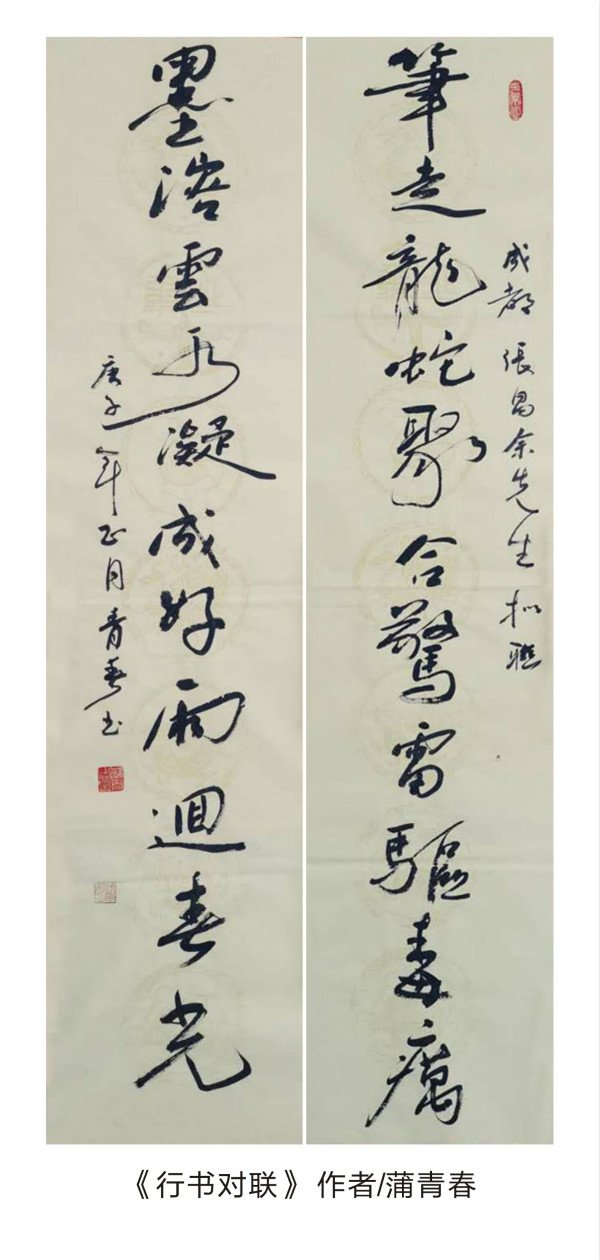 成都張昌余先生拟聯
筆走龍蛇聚合驚雷驅毒癘
墨溶雲水凝成好雨迴春光
庚子年正月青春书
《行书对联》作者/蒲青春